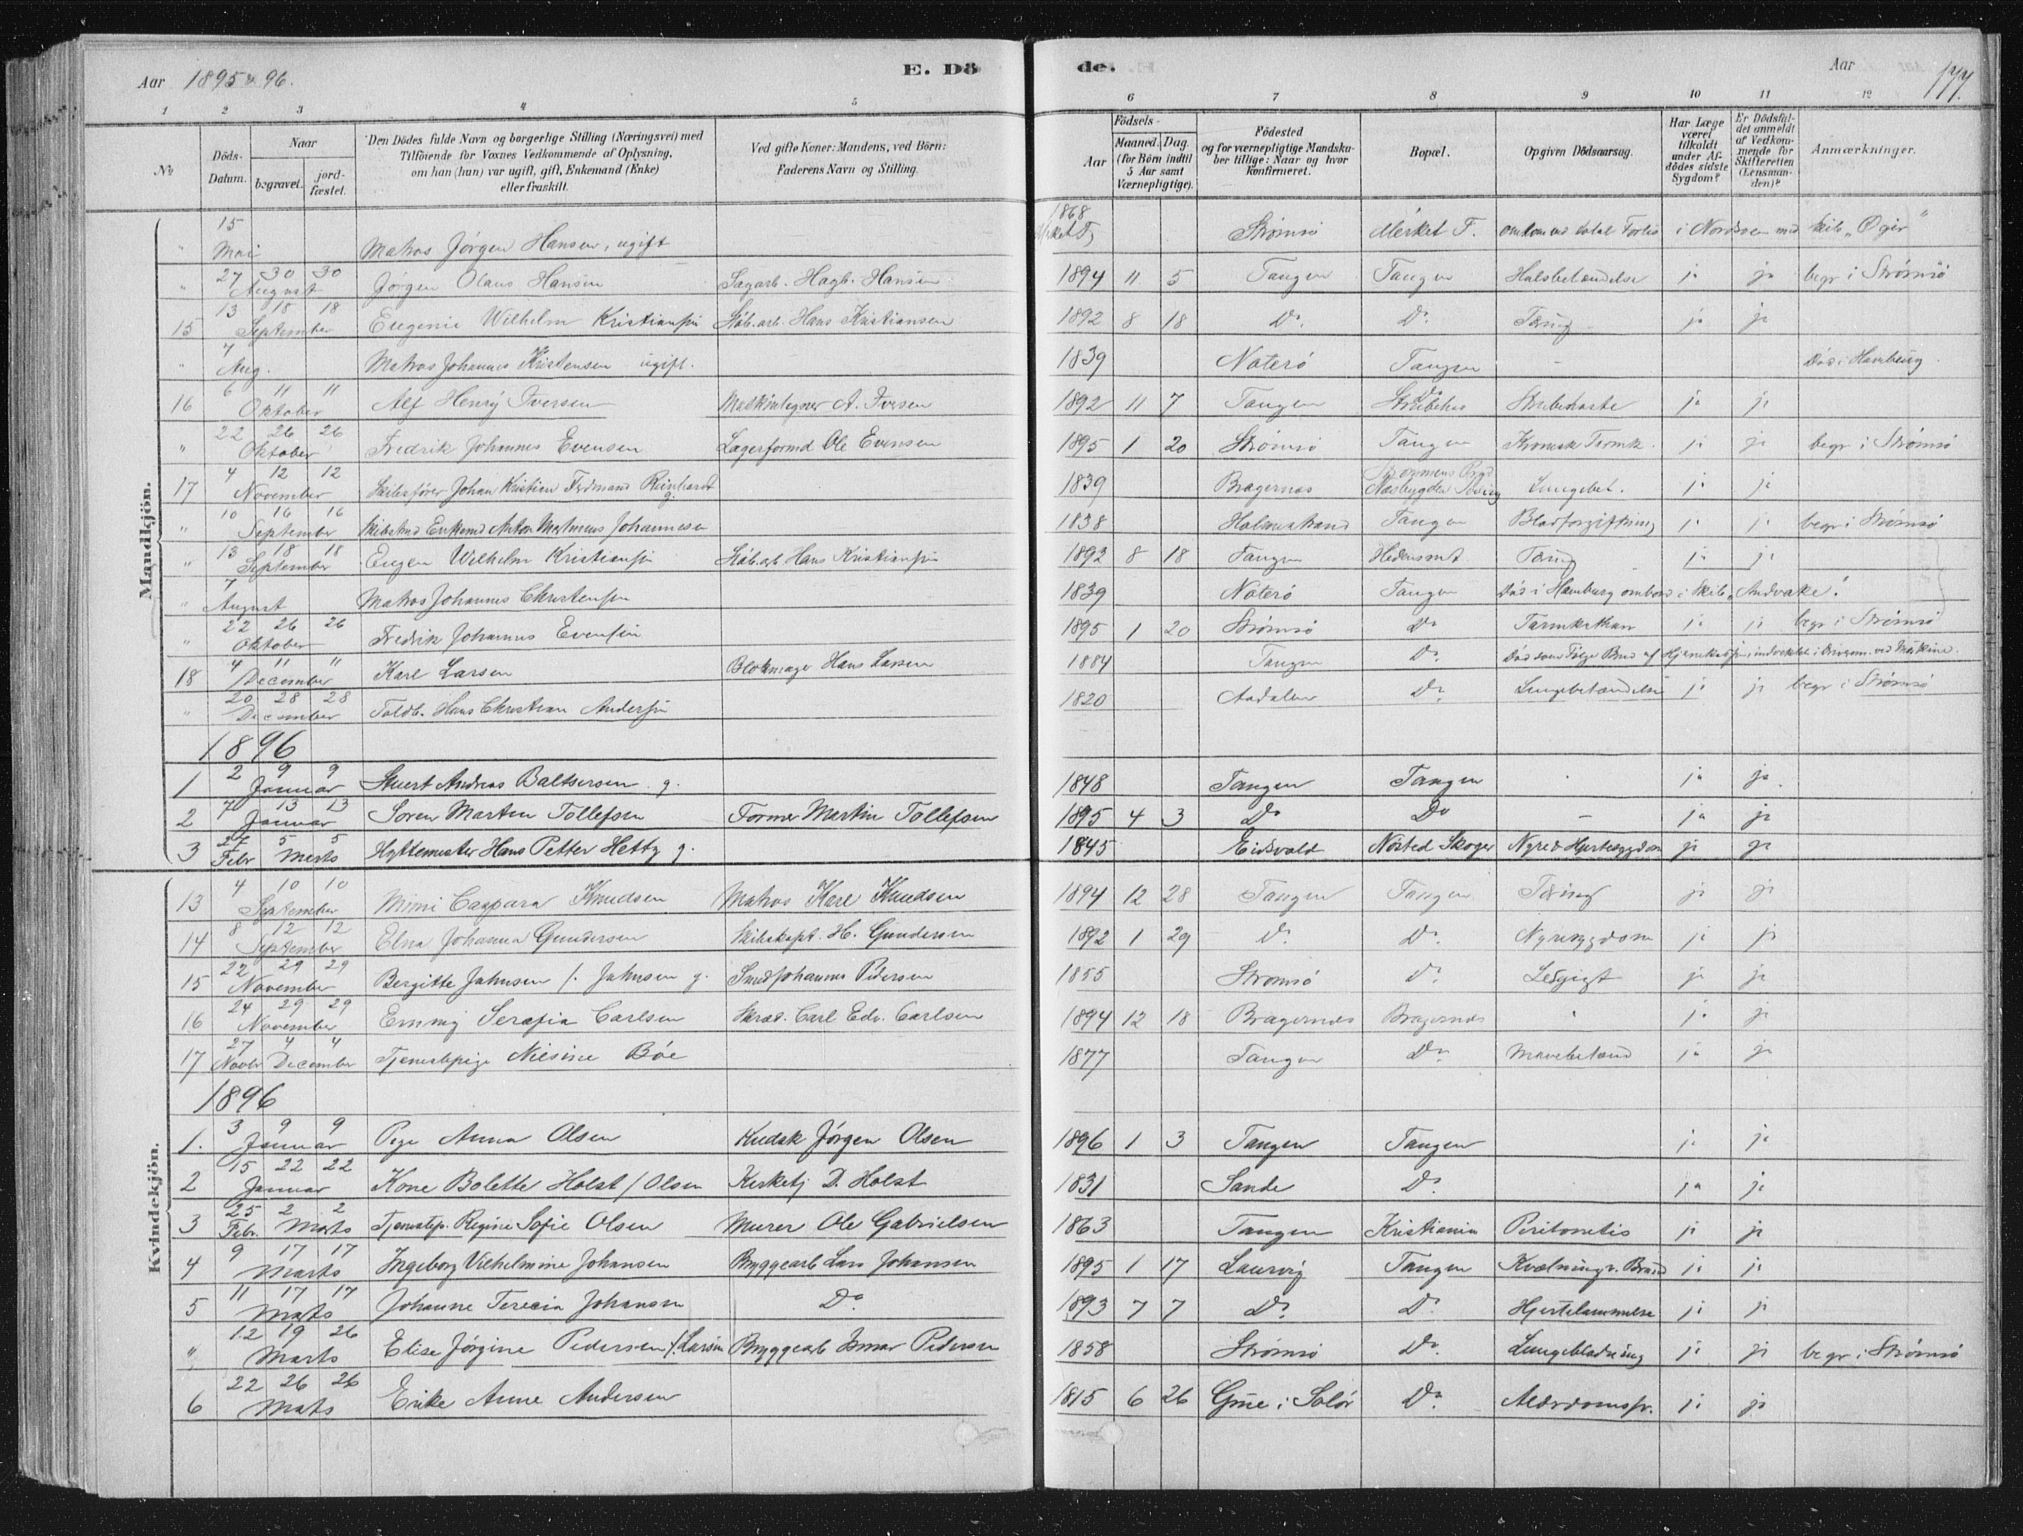 Aar 1895 & 96. E. Dö de. Aar 177.
1 2 3 4 5 6 7 8 9 10 11 12
No
Döds-Datum.
Naar
begravet.
jord-fæstet.
Den Dödes fulde Navn og borgerlige Stilling (Næringsvei) med
Tilföiende for Voxnes Vedkommende af Oplysning,
om han (hun) var ugift, gift, Enkemand (Enke)
eller fraskilt.
Ved gifte Koner: Mandens, ved Börn:
Faderens Navn og Stilling.
Födsels-
Aar
Maaned. Dag.
(for Börn indtil
5 Aar samt
Værnepligtige).
Födested
og for værnepligtige Mandska-
ber tillige: Naar og hvor
konfirmeret.
Bopæl.
Opgiven Dödsaarsag.
Har Læge
været
tilkaldt
under Af-
dödes sidste
Sygdom?
Er Dödsfal-
det anmeldt
af Vedkom-
mende for
Skifteretten
(Lensman-
den)?
Anmærkninger.
Mandkjön.
" 15 Mai Matros Jørgen Hansen, ugift 1868 Strømsö Mörket T. omkom ved total Forlis i Nordsøen med Skib "Øgir"
" 27 30 30 August Jørgen Olaus Hansen Sagarb. Hagb. Hansen 1894 11 5 Tangen Tangen Halsbetændelse ja ja begr i Strømsö
15 13 18 18 September Eugenie Wilhelm Kristiansen Støb.arb. Hans Kristiansen 1892 8 18 Do. Do. Tæring ja ja
" 7 Aug. Matros Johannes Kristensen ugift. 1839 Noterö Tangen - Død i Hamburg.
16 6 11 11 Oktober Alf Henry Iversen Maskinbygger A. Iversen 1892 11 7 Tangen Do Strubehoste ja ja
" 22 26 26 Oktober Fredrik Johannes Evensen Lagerformd Ole Evensen 1895 1 20 Strømsö Tangen Kronisk Tarmk. ja ja begr i Strømsö
17 4 12 12 November Skibsfører Johan Kristian Ferdinand Reinhardt g. 1839 Bragernæs Lungebet. ja ja
" 10 16 16 September Skibstmd Enkemd Anton Johannesen 1838 Holmestrand Tangen Blodforgiftning ja ja begr i Strømsö
" 13 18 18 September Eugen Wilhelm Kristiansen Støb.arb. Hans Kristiansen 1892 8 18 Tangen Tæring ja ja
" 7 August Matros Johannes Christensen 1839 Noterö Tangen Død i Hamburg ombord i Skib "Andvake".
" 22 26 26 Oktober Fredrik Johannes Evensen 1895 1 20 Strømsö Do Tarmkathar ja ja begr i Strømsö
18 4 11 11 December Karl Larsen Blokmager Hans Larsen 1884 Tangen Do. Død som Følge Brud af
" 20 28 28 December Toldb. Hans Christian Andersen 1820 Aadalen Do Lungebetændelse ja ja begr i Strømsö
1896
1 2 9 9 Januar Stuert Andreas Baltsersen g. 1848 Tangen Tangen ja ja
2 7 13 13 Januar Søren Marten Tollefsen Former Martin Tollefsen 1895 4 3 Do Do - ja ja
3 27 5 5 Febr Marts Hyttemester Hans Petter Hetty g. 1845 Eidsvold Nøsted Skoger Nyre & Hjertesygdom ja ja
Kvindekjön.
13 4 10 10 September Mimi Caspara Knudsen Matros Karl Knudsen 1894 12 28 Tangen Tangen Tæring ja ja
14 8 12 12 September Elna Johanna Gundersen Skibskapt. H. Gundersen 1892 1 29 Do. Do. Nyresygdom ja ja
15 22 29 29 November Bergitte Jahnsen f. Jahnsen g. Smed Johannes Pedersen 1855 Strømsö Do. Ledgigt ja ja
16 24 29 29 November Emmy Serafia Carlsen Skræd. Carl Edv. Carlsen 1894 12 18 Bragernæs Bragernæs ja ja
17 27 4 4 Novbr December Tjenestepige Nilsine Böe 1877 Tangen Do Mavebetænd ja ja
1896
1. 3 9 9 Januar Pige Anna Olsen Kudsk Jørgen Olsen 1896 1 3 Tangen Tangen ja ja
2 15 22 22 Januar Kone Bolette Holst f. Olsen Kirketj D. Holst 1831 Sande Do. ja ja
3 25 2 2 Febr. Marts Tjenestep. Regine Sofie Olsen Murer Ole Gabrielsen 1863 Tangen Kristiania Peritonetis ja ja
4 9 17 17 Marts Ingeborg Vilhelmine Johansen Bryggearb Lars Johansen 1895 1 17 Laurvig Tangen Kvælning v. Brand ja ja
5 11 17 17 Marts Johanne Terecia Johansen Do 1893 7 7 Do. Do. Hjertelammelse ja ja
" 12 19 26 Marts Elise Jørgine Pedersen f. Larsen Bryggearb Pedersen 1858 Strømsö Do. Lungeblødning ja ja begr i Strømsö
6 22 26 26 Mats Erike Anne Andersen 1815 6 26 Grue i Solör Do. Alderdomssv. ja ja